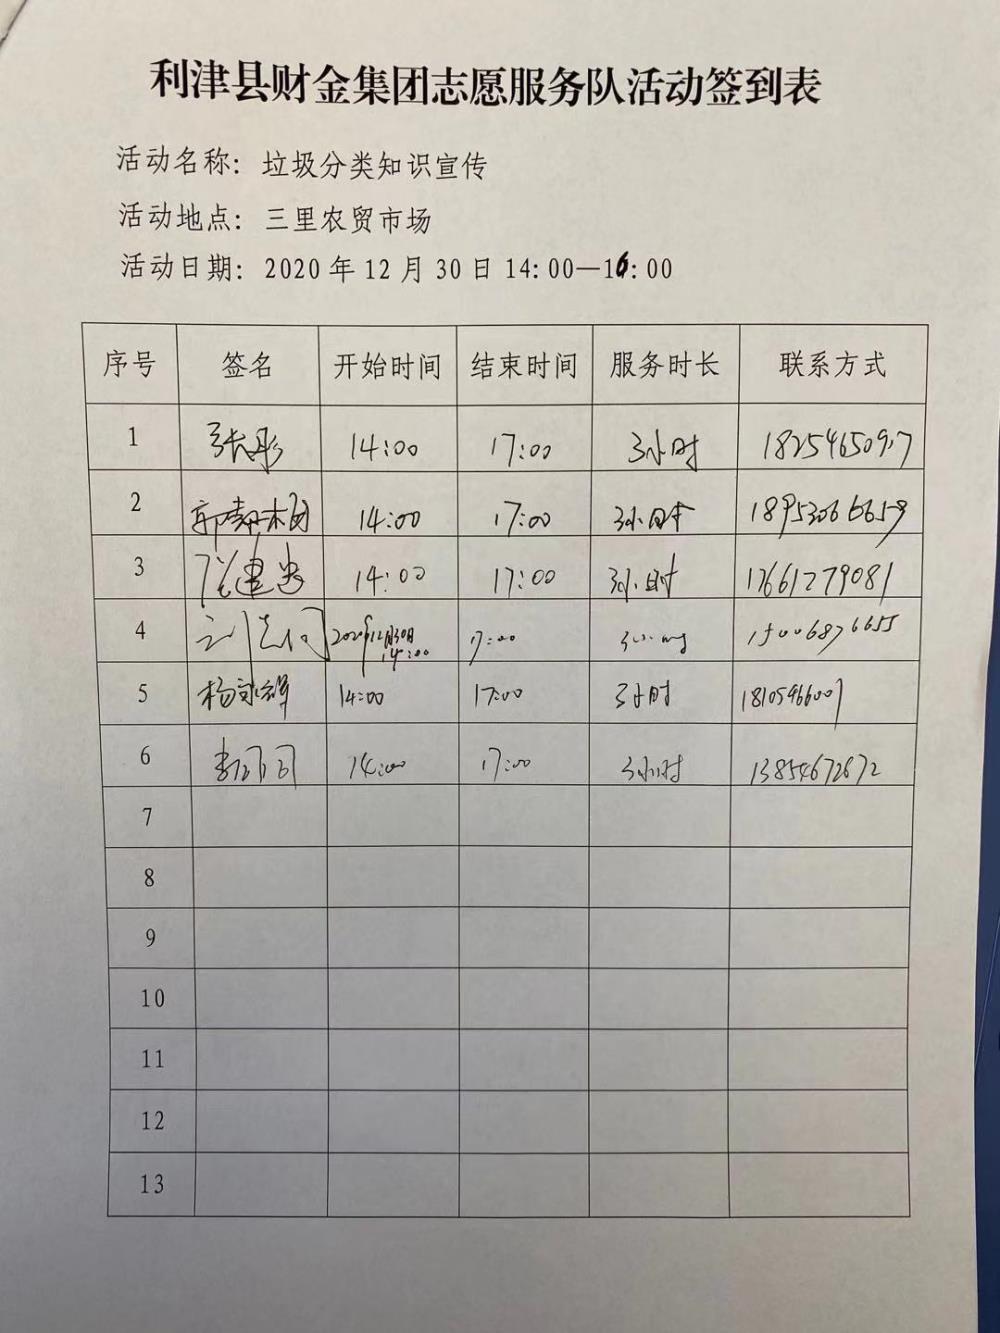 利津县财金集团志愿服务队活动签到表
活动名称：垃圾分类知识宣传
活动地点：三里农贸市场
活动日期：2020年12月30日14:00—16:00
序号 签名 开始时间 结束时间 服务时长 联系方式
1 张彤 14:00 17:00 3小时
2 14:00 17:00 3小时 18953066659
3 14:00 17:00 3小时 17661279081
4 2020年12月30日 17:00
14:00
5 杨 14:00 17:00 3小时
6 李 14:00 17:00 3小时 13854672672
7
8
9
10
11
12
13